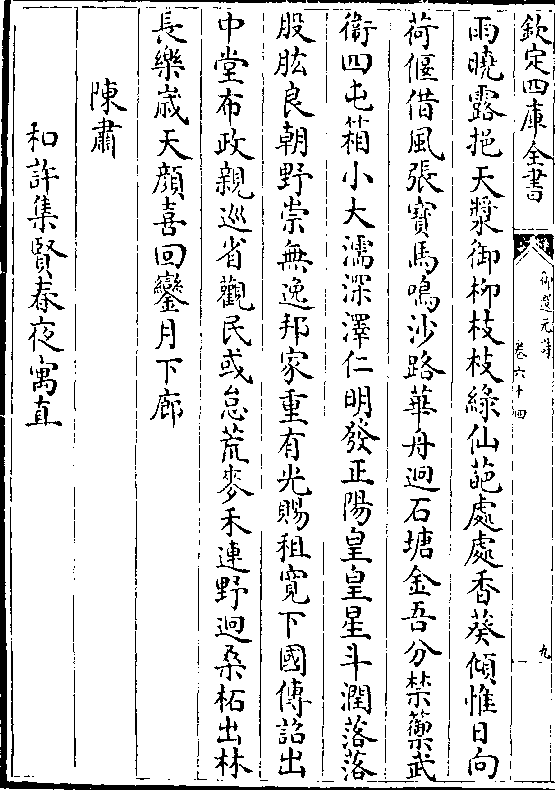 欽定四庫全書
御選元詩
卷六十四
九
雨曉露挹天漿御柳枝枝綠仙葩處處香葵傾惟日向
荷偃借風張寶馬鳴沙路華舟迥石塘金吾分禁籞武
衛四屯箱小大濡深澤仁明發正陽皇皇星斗潤落落
股肱良朝野崇無逸邦家重有光賜租寛下國傳詔出
中堂布政親巡省觀民或怠荒麥禾連野迥桑柘出林
長樂歲天顔喜回鑾月下廊
陳肅
和許集賢春夜寓直